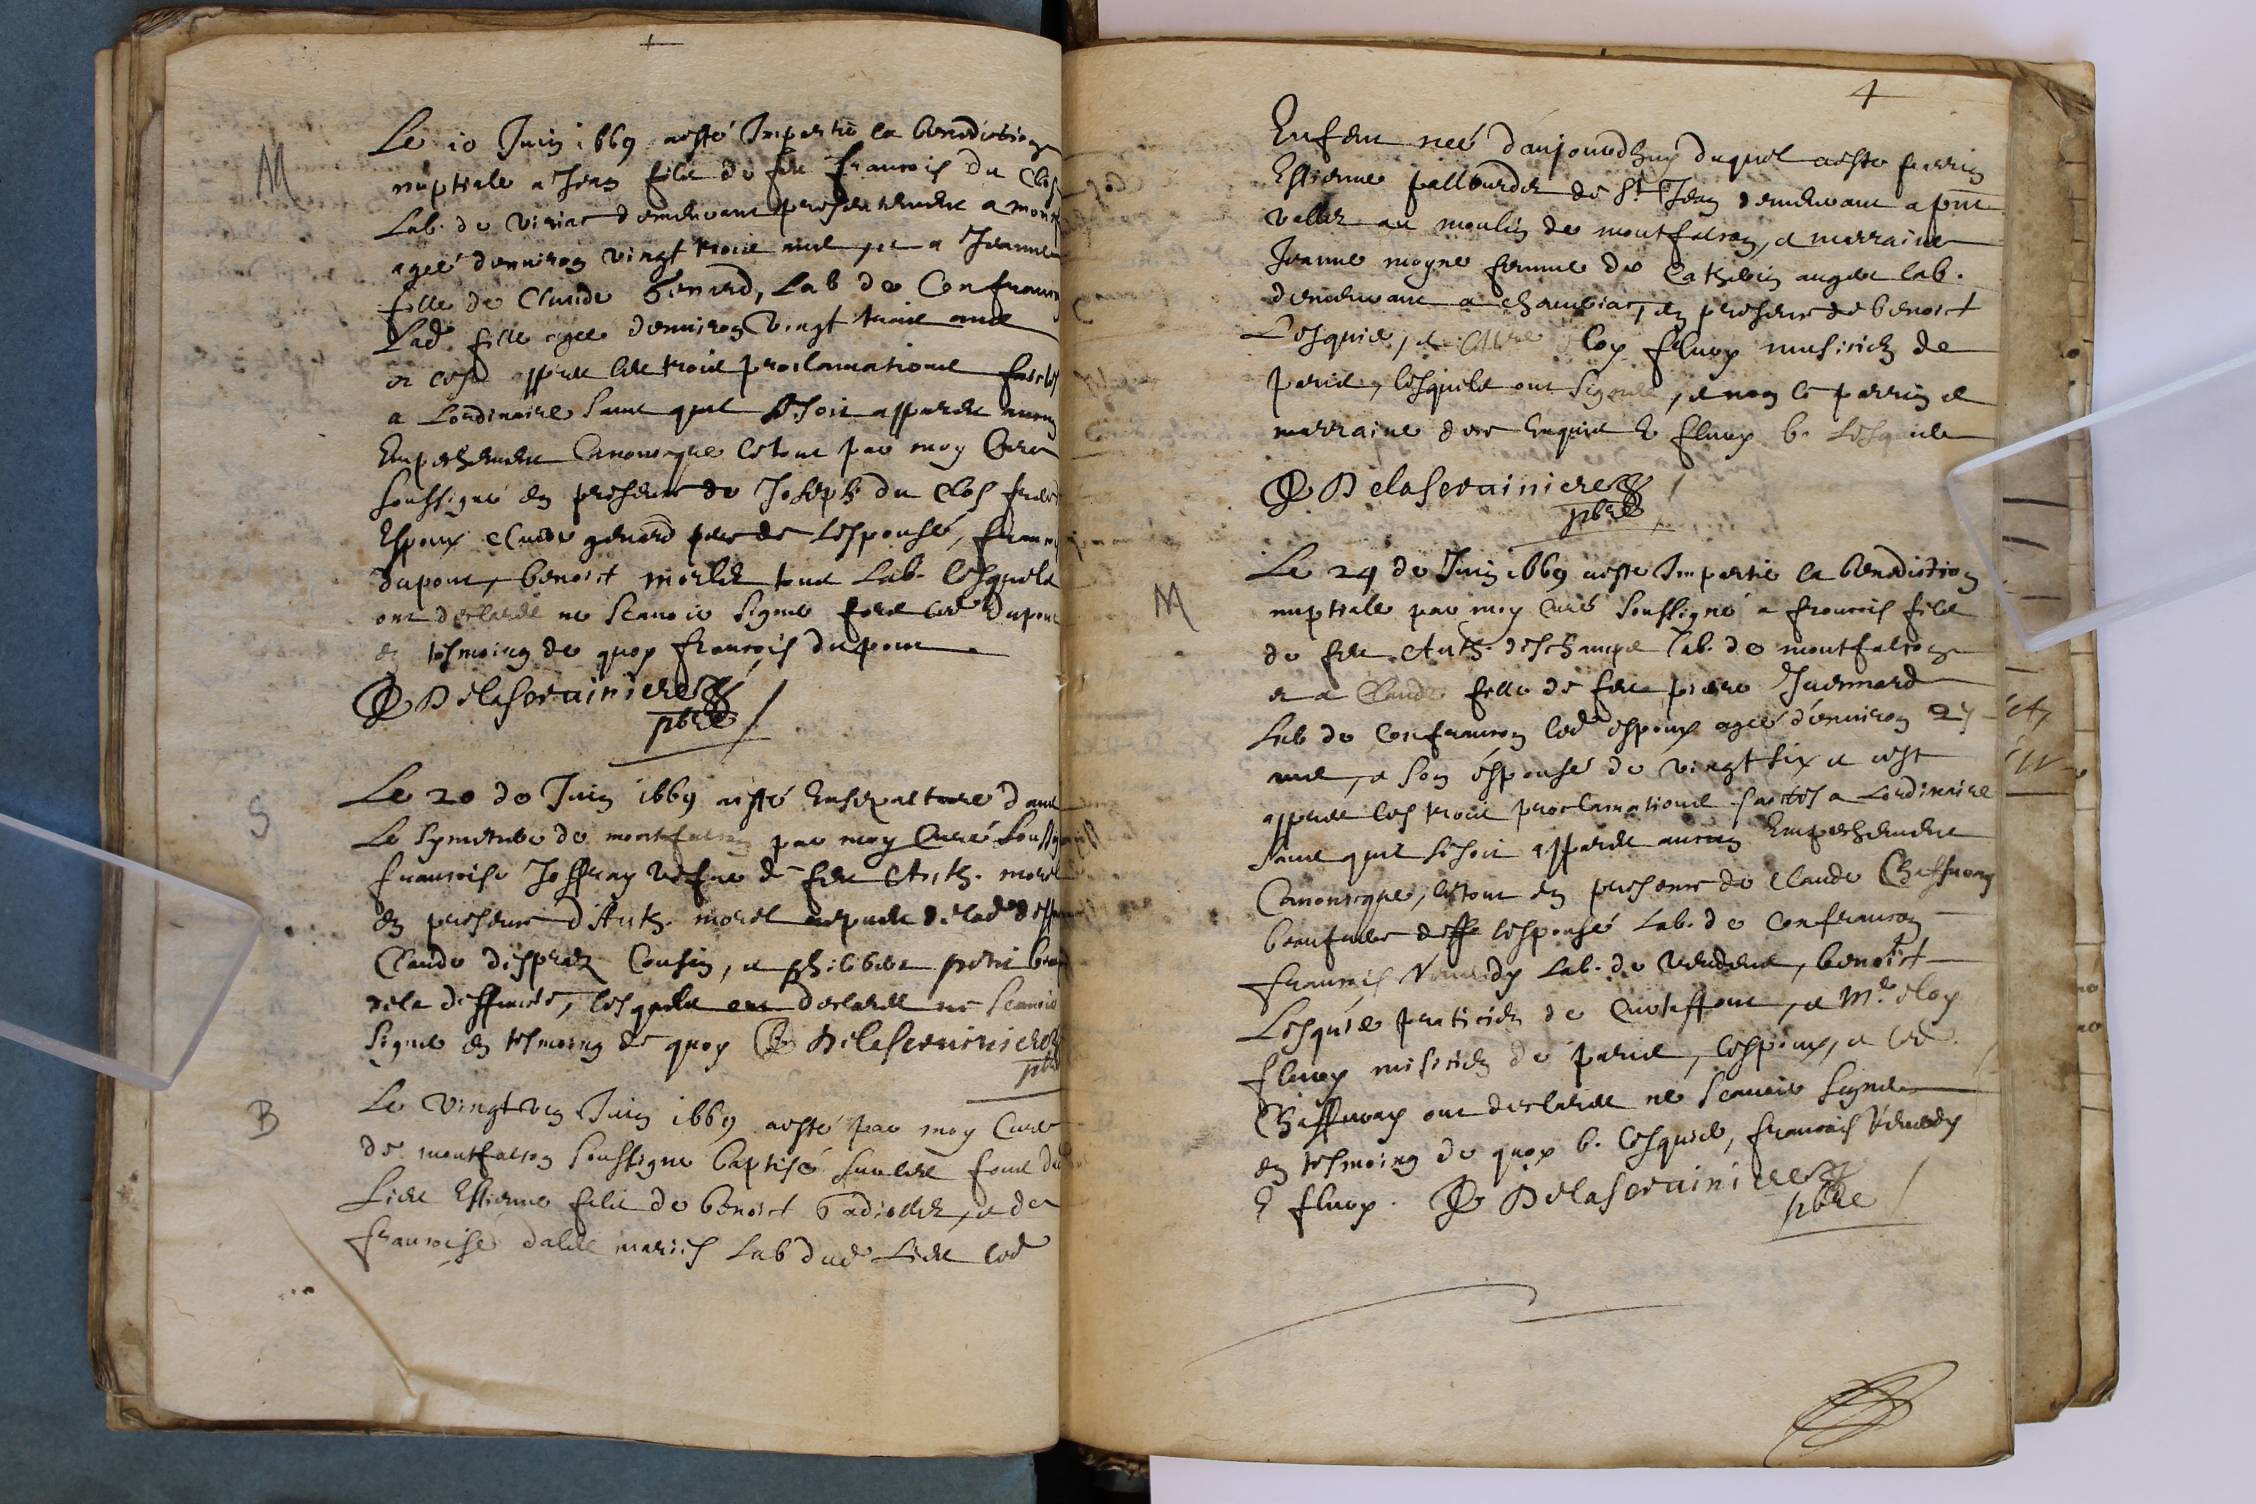 M
Le 10 Juin 1669 a esté Impertie la benediction
nuptiale a Jean filz de feu francois du Clos
Lab. de viriac demeurant presentement a montf
ageé d'environ vingt trois ans, et a Jeanne
fille de Claude Genard, Lab de Confrancon
Lad. fille agee d'environ vingt trois ans
et cest appres les trois proclamations faictes
a Lordinaire sans quil se soit apparu aucun
Empeschement Canonique le tout par moy Curé
soussigné en presence de Joseph du Clos frere de
Espoux Claude genard pere de Lespouse, francois
dupont, benoist morlet tous Lab. lesquels
ont declaré ne scavoir signer fors led dupont
en tesmoing de quoy francois dupont.
Delaservainiere
pbre
S
Le 20 de Juin 1669 a esté Ensepulturé dans
Le Symetiere de montfalcon par moy Curé soussigné
francoise Joffray vefve de feu Anth. morel
en presence d'Anth. morel
Claude desprez Cousin, et philibert petit beau
de la deffuncte, lesquels ont declaré ne scavoir
signer en tesmoing de quoy Delaservainiere
pbre
B
Le vingt un Juin 1669 a esté par moy Curé
de montfalcon soussigné baptisé sur les fons dud
Lieu Estienne filz de benoist Gadiollet, et de
francoise dalle mariés Lab dud Lieu led
4
Enfant neé d'aujourd'huy duquel a esté parrin
Estienne pallourdet de St Jean demeurant a pnt
vallet au moulin de montfalcon, et marraine
Jeanne moyne femme de Catherin auger lab.
demeurant a chaveiac, en presence de benoist
Lesquie, et eloy fluoy musicien de
paris, lesquels ont signés, et non le parrin et
marraine de ce enquis E fluoy b. Lesquie
Delaservainiere
pbre
M
Le 24 de Juin 1669 a esté Impertie la benediction
nuptiale par moy Curé soussigné a francois filz
de feu Anth. deschamps Lab. de montfalcon
et a Claude fille de feu piere Juennard
Lab de Confrancon led espoux ageé d'environ 24
ans, et son espouse de vingt six et cest
appres les trois proclamations faictes a Lordinaire
sans quil se soit apparu aucun Empeschement
Canonique, le tout en presence de Claude Chaffuoy
beaufrere de lespouse Lab. de Confrancon
francois Venedy Lab. de vendens, benoist
Lesquie praticien de Curtaffont, et Me eloy
fluoy musicien de paris, lespoux, et led.
Chaffuoy ont declaré ne scavoir signer
en tesmoing de quoy b. Lesquie, francois Venedy
E fluoy. Delaservainiere
pbre